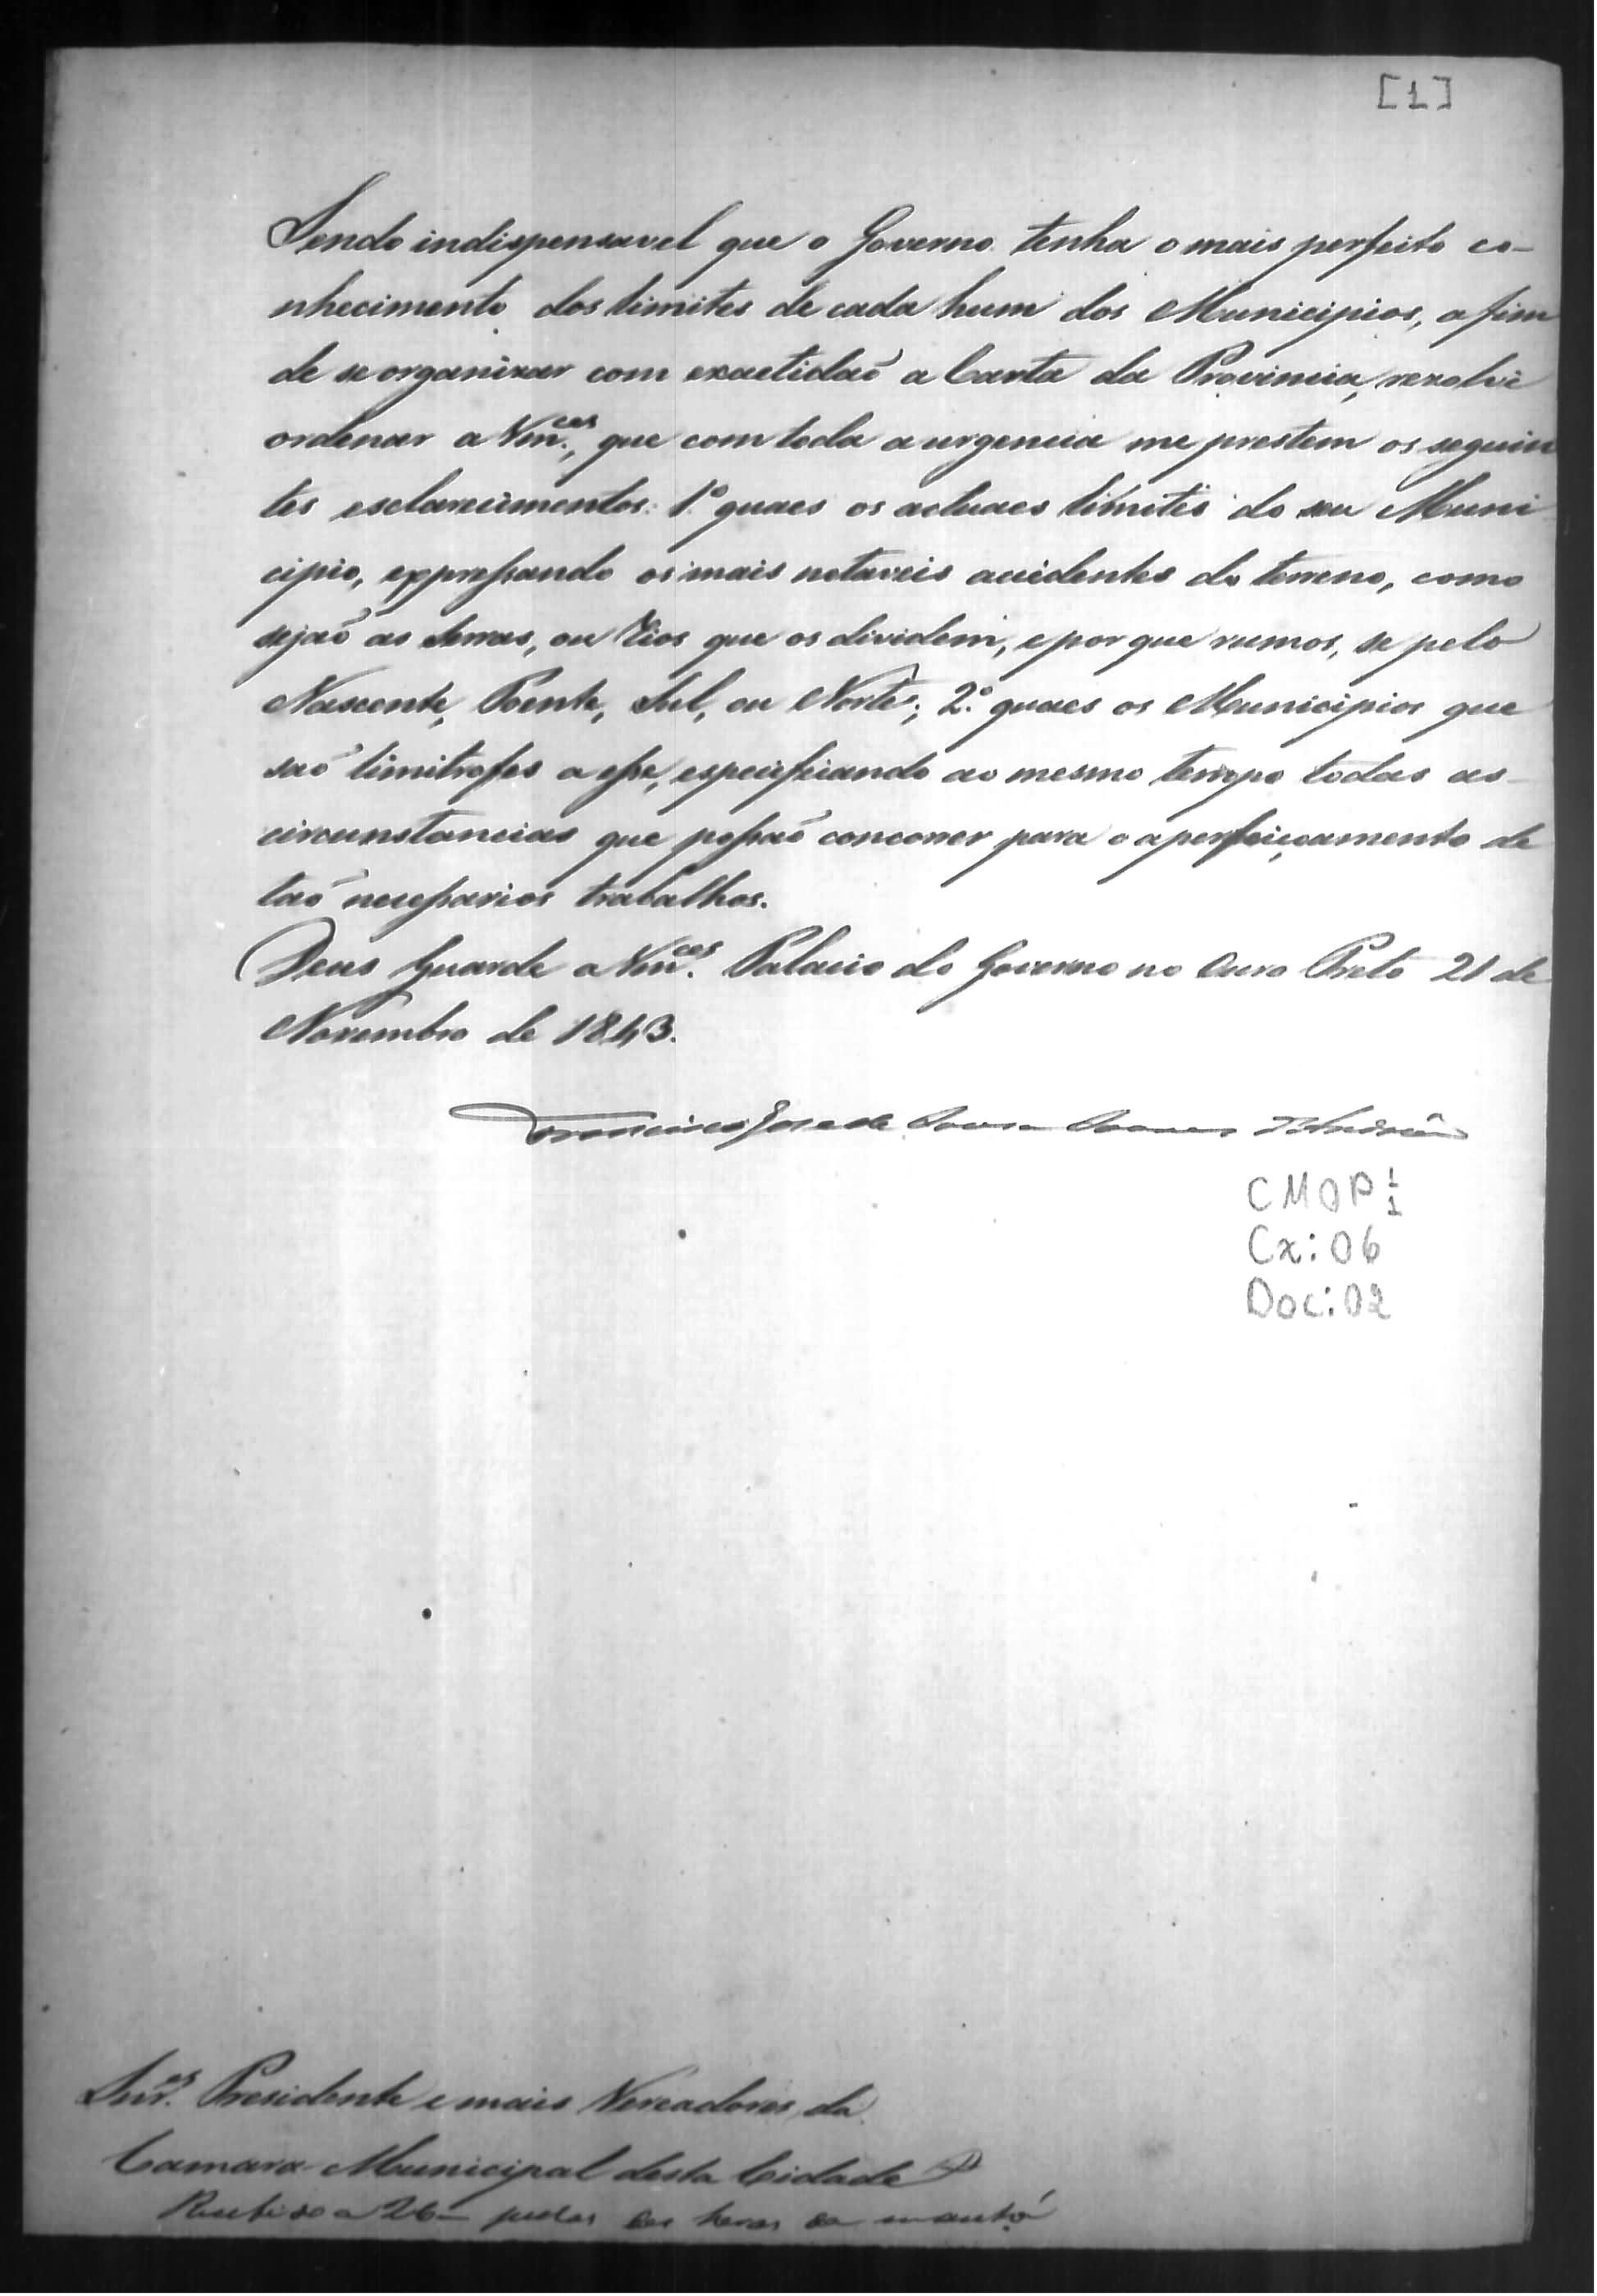 [1]
Sendo indispensavel que o Governo tenha o mais perfeito co-
nhecimento dos limites de cada hum dos Municipios, a fim
de se organizar com exactidaõ a Carta da Provincia, rezolvi
ordenar a Vm.ces, que com toda a urgencia me prestem os seguin
tes esclarecimentos: 1.º quaes os actuaes limites do seu Muni
cipio, expressando os mais notaveis accidentes do terreno, como
sejaõ as Serras, ou Rios que os dividem, e por que rumos, se pelo
Nascente, Poente, Sul, ou Norte; 2.º quaes os Municipios que
saõ limitrofes a esse, especificando ao mesmo tempo todas as
circunstancias que possaõ concorrer para o aperfeiçoamento de
taõ necessarios trabalhos.
Deus Guarde a Vm.ces Palacio do Governo no Ouro Preto 21 de
Novembro de 1843.
Francisco Jose de Sousa Soares d'Andréa
CMOP 1/1
Cx: 06
Doc: 02
Snr.es Presidente e mais Vereadores da
Camara Municipal desta Cidade
a 26 pelas horas da manhã